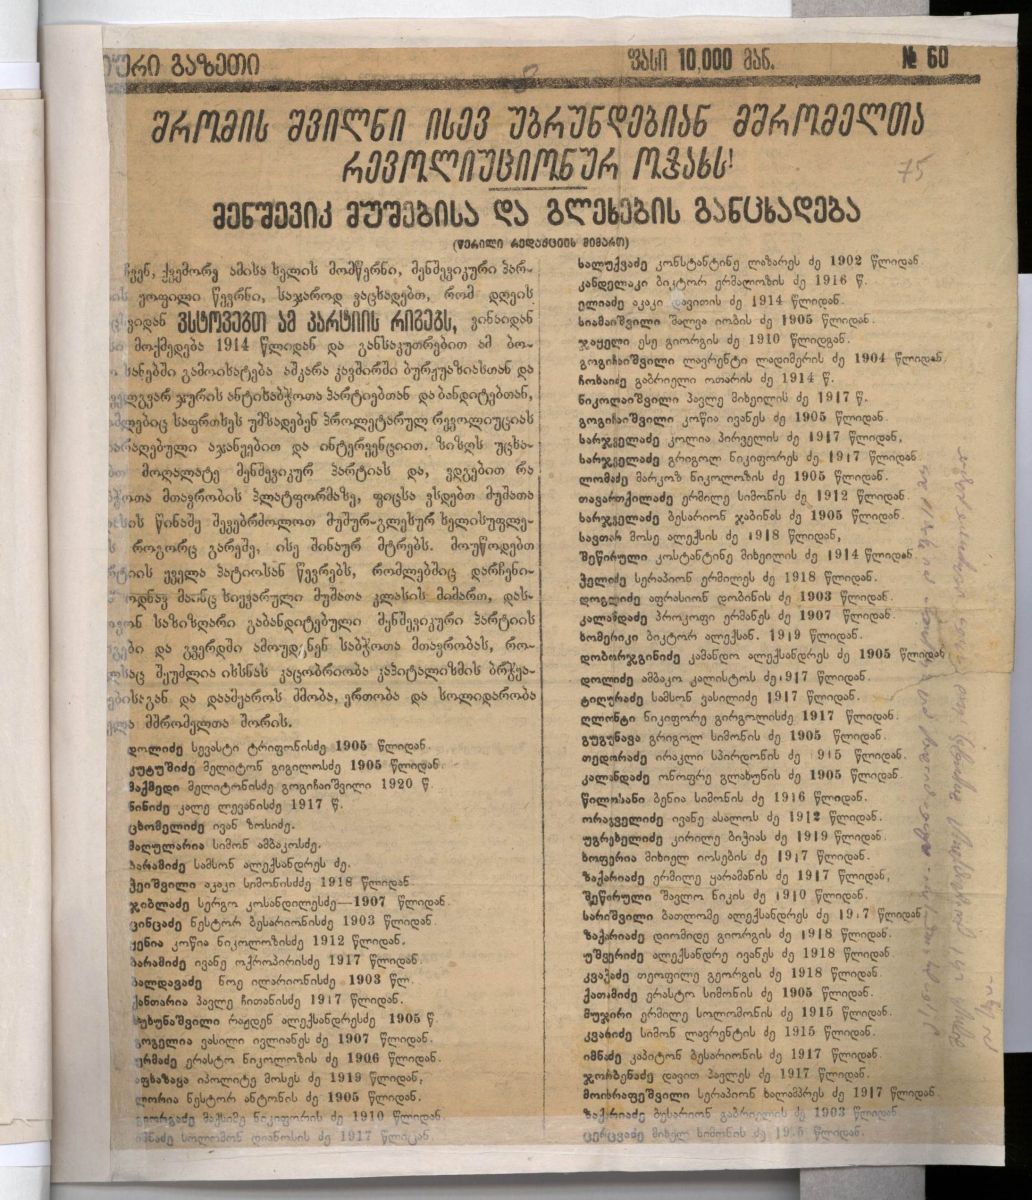 ური გაზეთი
ფასი 10,000 მან.
№ 60
75
შრომის შვილნი ისევ უბრუნდებიან მშრომელთა
რევოლიუციონურ ოჯახს!
მენშევიკ მუშებისა და გლეხების განცხადება
(წერილი რედაქციის მიმართ)
ჩვენ, ქვემორე ამისა ხელის მომწერნი, მენშევიკური პარ-
ის ყოფილი წევრნი, საჯაროდ ვაცხადებთ, რომ დღეის
ვიდან ვსტოვებთ ამ პარტიის რიგებს, ვინაიდან
მოქმედება 1914 წლიდან და განსაკუთრებით ამ ბო-
სანებში გამოიხატება აშკარა კავშირში ბურჟუაზიასთან და
ველგვარ ჯურის ანტისაბჭოთა პარტიებთან და ბანდიტებთან,
მლებიც საფრთხეს უმზადებენ პროლეტარულ რევოლიუციას
არაღებული აჯანყებით და ინტერვენციით. ზიზღს უცხა-
მოღალატე მენშევიკურ პარტიას და, ვდგებით რა
ჭოთა მთავრობის პლატფორმაზე, ფიცსა ვსდებთ მუშათა
სის წინაშე შევებრძოლოთ მუშურ-გლეხურ ხელისუფლე-
როგორც გარეშე, ისე შინაურ მტრებს. მოუწოდებთ
რტიის ყველა პატიოსან წევრებს, რომლებშიც დარჩენი-
ოდნავ მაინც სიყვარული მუშათა კლასის მიმართ, დას-
ოვონ საზიზღარი გაბანდიტებული მენშევიკური პარტიის
გები და გვერდში ამოუდგნენ საბჭოთა მთავრობას, რო-
ლსაც შეუძლია იხსნას კაცობრიობა კაპიტალიზმის ბრჭყა-
ებისაგან და დაამყაროს ძმობა, ერთობა და სოლიდარობა
ელა მშრომელთა შორის.
დოლიძე სევასტი ტრიფონისძე 1905 წლიდან.
კუტუშიძე მელიტონ გიგილოსძე 1905 წლიდან.
მაქმედი მელიტონისძე გოგიჩაიშვილი 1920 წ.
ნინიძე კალე ლევანისძე 1917 წ.
ცხომელიძე ივან ზოსიძე.
მაღულარია სიმონ ამბაკოსძე.
ბარამიძე სამსონ ალექსანდრეს ძე.
ჭეიშვილი აკაკი სიმონისძძე 1918 წლიდან.
ჯიბლაძე სერგო კოსანდილესძე—1907 წლიდან.
ცინცაძე ნესტორ ბესარიონისძე 1903 წლიდან.
ჟენია კოწია ნიკოლოზისძე 1912 წლიდან.
ბარამიძე ივანე ოქროპირისძე 1917 წლიდან.
ბალდავაძე ნოე ილარიონისძე 1903 წლ.
ქანთარია პავლე ჩითანისძე 1917 წლიდან.
უბუნაშვილი რაჟდენ ალექსანდრესძე 1905 წ.
გოგელია ვასილი ივლიანეს ძე 1907 წლიდან.
ურმაძე ერასტო ნიკოლოზის ძე 1906 წლიდან.
აფხაზავა იპოლიტე მოსეს ძე 1919 წლიდან,
ლორია ნესტორ ანტონის ძე 1905 წლიდან.
გეორგაძე მაქსიმე ნიკიფორის ძე 1910 წლიდან.
იმნაძე სოლომონ დიანოსის ძე 1917 წლიდან.
სალუქვაძე კონსტანტინე ლაზარეს ძე 1902 წლიდან.
კანდელაკი ბიკტორ ერმალოზის ძე 1916 წ.
ელიაძე აკაკი დავითის ძე 1914 წლიდან.
სიამაიშვილი შალვა იობის ძე 1905 წლიდან.
ჯაყელი ესე გიორგის ძე 1910 წლიდგან.
გოგიჩაიშვილი ლავრენტი ლადიმერის ძე 1904 წლიდან,
ჩოხაიძე გაბრიელი ოთარის ძე 1914 წ.
ნიკოლაიშვილი პავლე მიხეილის ძე 1917 წ.
გოგიჩაიშვილი კოწია ივანეს ძე 1905 წლიდან.
სარჯველაძე კოლია პირველის ძე 1917 წლიდან,
სარჯველაძე გრიგოლ ნიკიფორეს ძე 1917 წლიდან.
ლომაძე მარკოზ ნიკოლოზის ძე 1905 წლიდან.
თავართქილაძე ერმილე სიმონის ძე 1912 წლიდან.
სარჯველაძე ბესარიონ ჯაბინას ძე 1905 წლიდან.
სავთარ მოსე ალექსის ძე 1918 წლიდან,
შეწირული კოსტანტინე მიხეილის ძე 1914 წლიდან.
ჭელიძე სერაპიონ ერმილეს ძე 1918 წლიდან.
დოგლიძე აფრასიონ დობინის ძე 1903 წლიდან.
კალანდაძე პროკოფი ერმანეს ძე 1907 წლიდან.
ხომერიკი ბიკტორ ალექსან. 1919 წლიდან.
დობორჯგინიძე კამანდო ალექსანდრეს ძე 1905 წლიდან
დოლიძე ამბაკო კალისტოს ძე 1917 წლიდან.
ტიღურაძე სამსონ ვასილიძე 1917 წლიდან.
ღლონტი ნიკიფორე გირგოლისძე 1917 წლიდან.
გუგუნავა გრიგოლ სიმონის ძე 1905 წლიდან.
თედორაძე ირაკლი სპირდონის ძე 1915 წლიდან.
კალანდაძე ონოფრე გლახუნის ძე 1905 წლიდან.
წილოსანი ბენია სიმონის ძე 1916 წლიდან.
ორაგველიძე ივანე ასალოს ძე 1912 წლიდან.
უგრეხელიძე კირილე ბიჭიას ძე 1919 წლიდან.
ბოფერია მიხიელ იოსების ძე 1917 წლიდან.
ზაქარიაძე ერმილე ყარამანის ძე 1917 წლიდან,
შეწირული შავლო ნიკის ძე 1910 წლიდან.
სარიშვილი ბათლომე ალექსანდრეს ძე 1917 წლიდან.
ზაქარიაძე დიომიდე გიორგის ძე 1918 წლიდან.
უშვერიძე ალექსანდრე ივანეს ძე 1918 წლიდან.
კვაქაძე თეოფილე გეორგის ძე 1918 წლიდან.
ქათამიძე ერასტო სიმონის ძე 1905 წლიდან.
მუჯირი ერმილე სოლომონის ძე 1915 წლიდან.
კვარიძე სიმონ ლავრენტის ძე 1915 წლიდან.
იმნაძე კაპიტონ ბესარიონის ძე 1917 წლიდან.
ჯორბენაძე დავით პავლეს ძე 1917 წლიდან.
მოისრაფეშვილი სერაპიონ ხალამპრეს ძე 1917 წლიდან
ზაქარიაძე ბესარიონ გაბრიელის ძე 1903 წლიდან
ცერცვაძე მიხელ სიმონის ძე 1905 წლიდან.